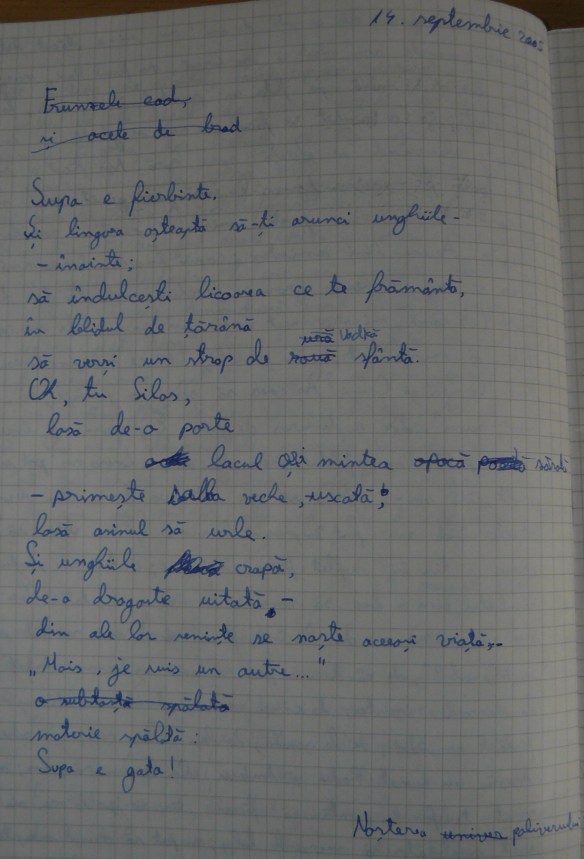 14. septembrie 2005
Frunzele cad,
și acele de brad
Supa e fierbinte.
Și lingura așteaptă să-ți arunci unghiile -
- înainte;
să îndulcești licoarea ce te frământă,
în blidul de țărână
ură Vodkă
să verși un strop de rouă sfântă.
Oh, tu Silas,
lasă de-o parte
lacul și mintea opacă
- primește salba veche, uscată;
lasă asinul să urle.
Și unghiile crapă,
de-o dragoste uitată, -
din ale lor reniște se naște aceeași viață,-
„Mais, je suis un autre..."
o substanță spălată
materie spăltă:
Supa e gata!
Nașterea univer poliversului